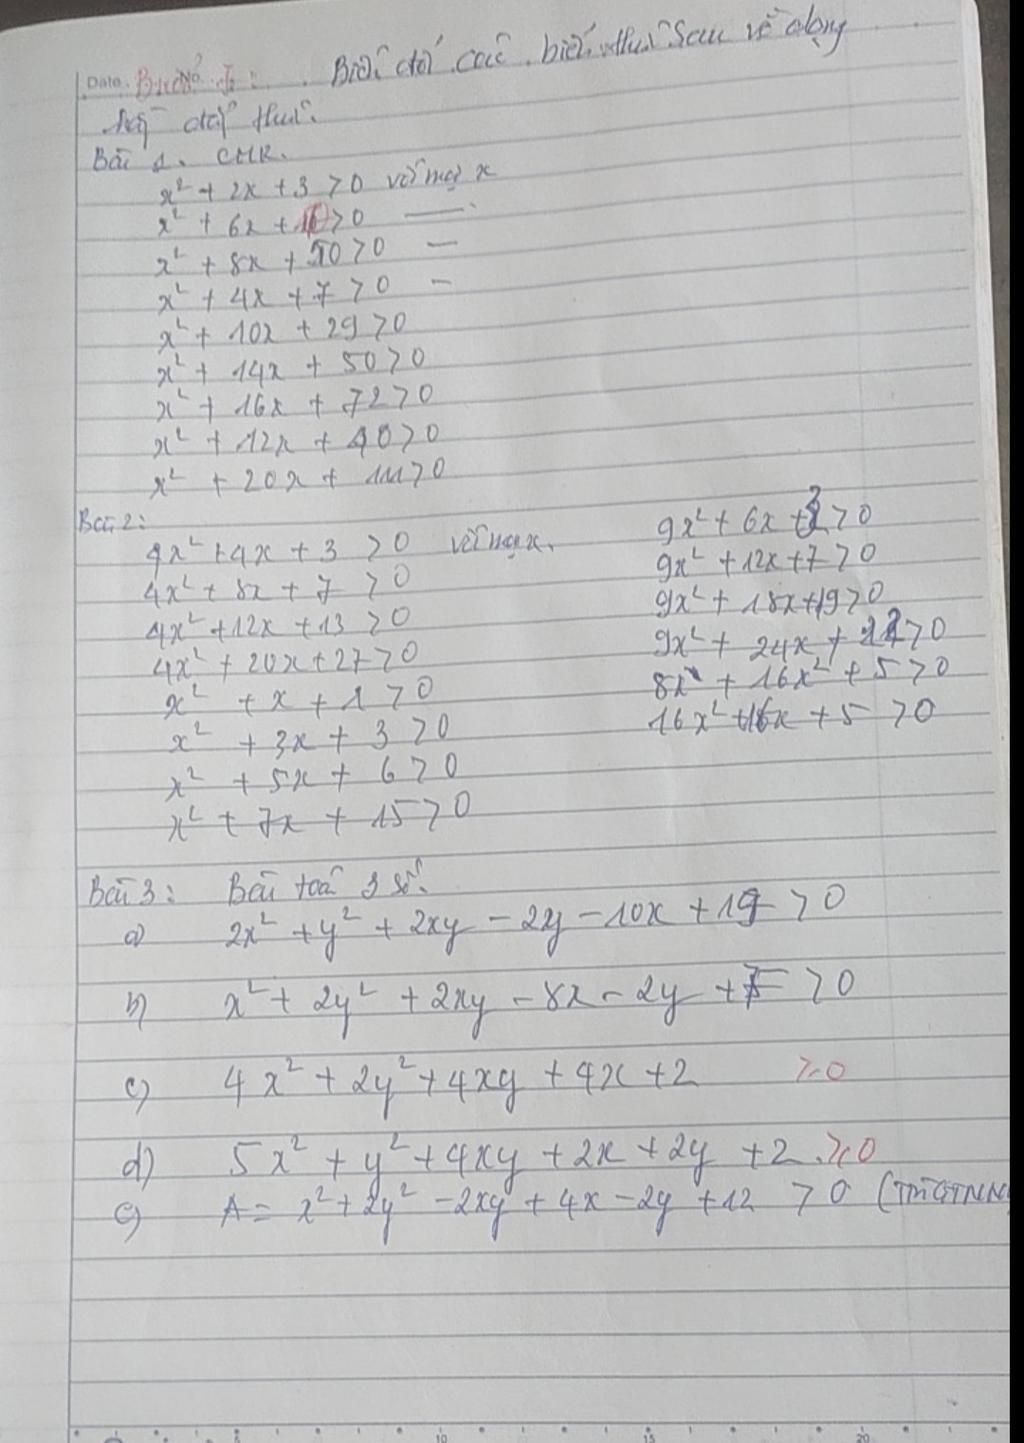 Date. No. Buổi : Biến đổi các biểu thức sau về dạng
hđ đẳng thức.
Bài 1. CMR.
x² + 2x + 3 > 0 với mọi x
x² + 6x + 10 > 0 —
x² + 8x + 20 > 0 —
x² + 4x + 7 > 0 —
x² + 10x + 29 > 0
x² + 14x + 50 > 0
x² + 16x + 72 > 0
x² + 12x + 40 > 0
x² + 20x + 111 > 0
Bài 2:
4x² + 4x + 3 > 0 với mọi x.
4x² + 8x + 7 > 0
4x² + 12x + 13 > 0
4x² + 20x + 27 > 0
x² + x + 1 > 0
x² + 3x + 3 > 0
x² + 5x + 6 > 0
x² + 7x + 15 > 0
9x² + 6x + 3 > 0
9x² + 12x + 7 > 0
9x² + 18x + 19 > 0
9x² + 24x + > 0
+ 16x² + 5 > 0
16x² + 16x + 5 > 0
Bài 3: Bài toán 3 số.
a) 2x² + y² + 2xy − 2y − 10x + 19 > 0
b) x² + 2y² + 2xy − 8x − 2y + > 0
c) 4x² + 2y² + 4xy + 4x + 2 ≥ 0
d) 5x² + y² + 4xy + 2x + 2y + 2 ≥ 0
e) A = x² + 2y² − 2xy + 4x − 2y + 12 > 0 (Tìm GTNN